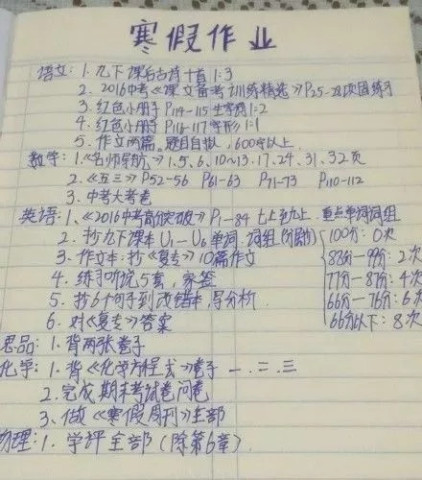 寒假作业
语文：1. 九下课后古诗十首 1:3
2. 2016中考《课文备考训练精选》P25-28次国练习
3. 红色小册子 P114-115 生字词 1:2
4. 红色小册 P116-117 字形 1:1
5. 作文两篇。题目自拟，600字以上.
数学：1.《名师导航》1.5.6.10~13.17.24.31.32页
2.《五三》P52-56 P61-63 P71-73 P110-112
3. 中考大考卷
英语：1、《2016中考高分突破》P1-84 七上至九上. 重点单词词组
2. 抄九下课本 U1-U6 单词. 词组 100分：0次
3. 作文本：抄《复专》10篇作文 88分-99分：2次
4. 练习听说5套，家签 77分-87分：4次
5. 抄6个句子到改错本，写分析. 66分-76分：6次
6. 对《复专》答案 66分以下：8次
思品：1. 背两张卷子
化学：1. 背《化学方程式》卷子 一.二.三
2. 完成期末考试卷问卷
3、做《寒假周刊》全部
物理：1. 学评全部（除第6章）